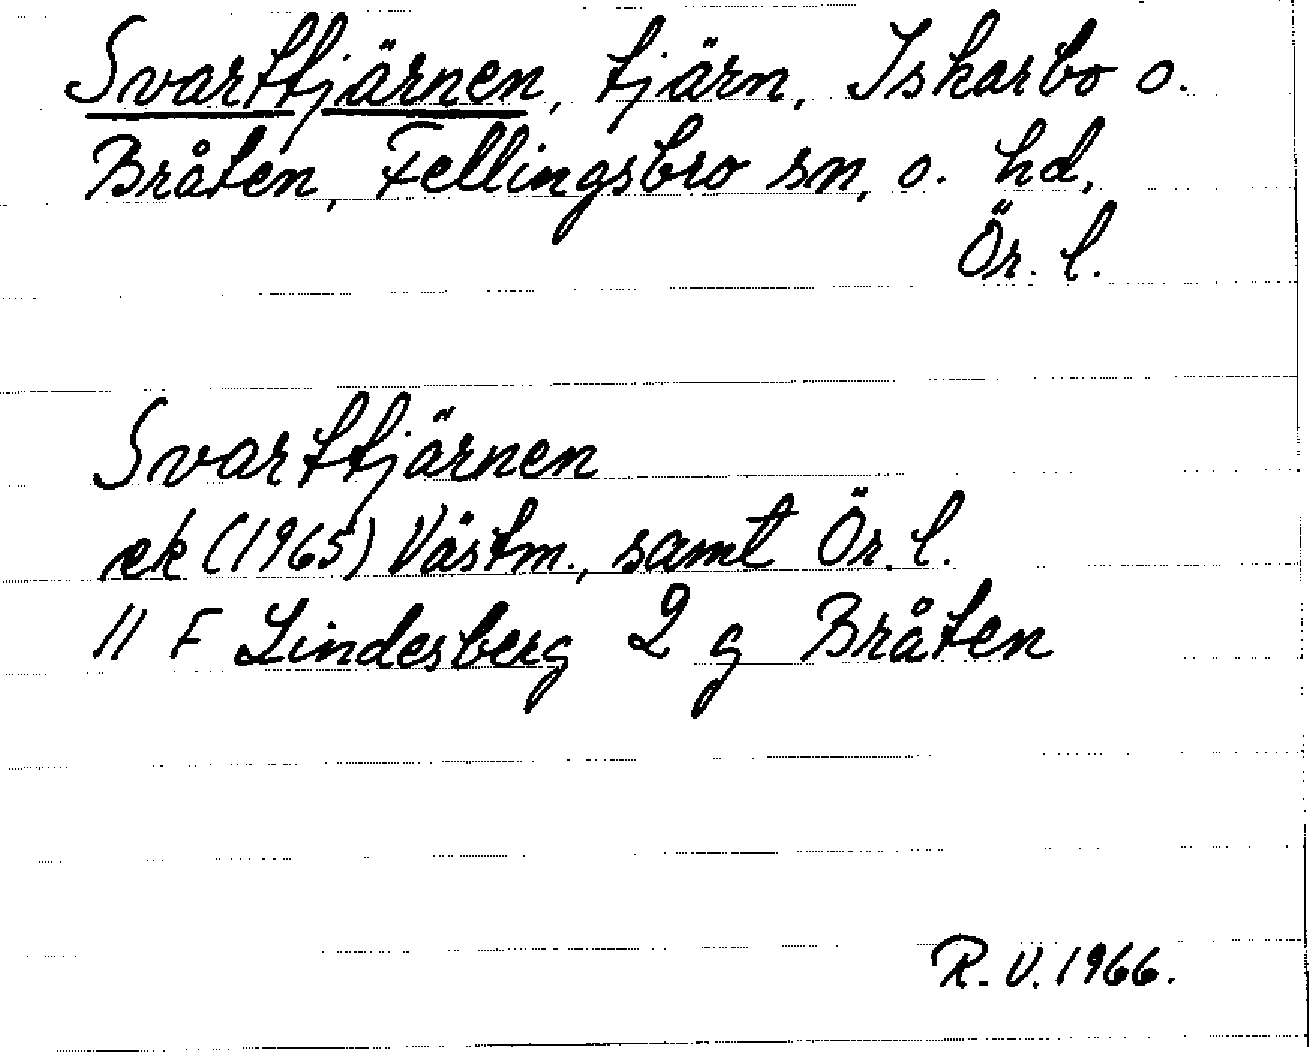 Svarttjärnen, tjärn, Iskarbo o.
Bråten, Fellingsbro sn, o. hd,
Ör. l.
Svarttjärnen
ek (1965) Västm., samt Ör. l.
11 F Lindesberg 2 g Bråten
R. V. 1966.